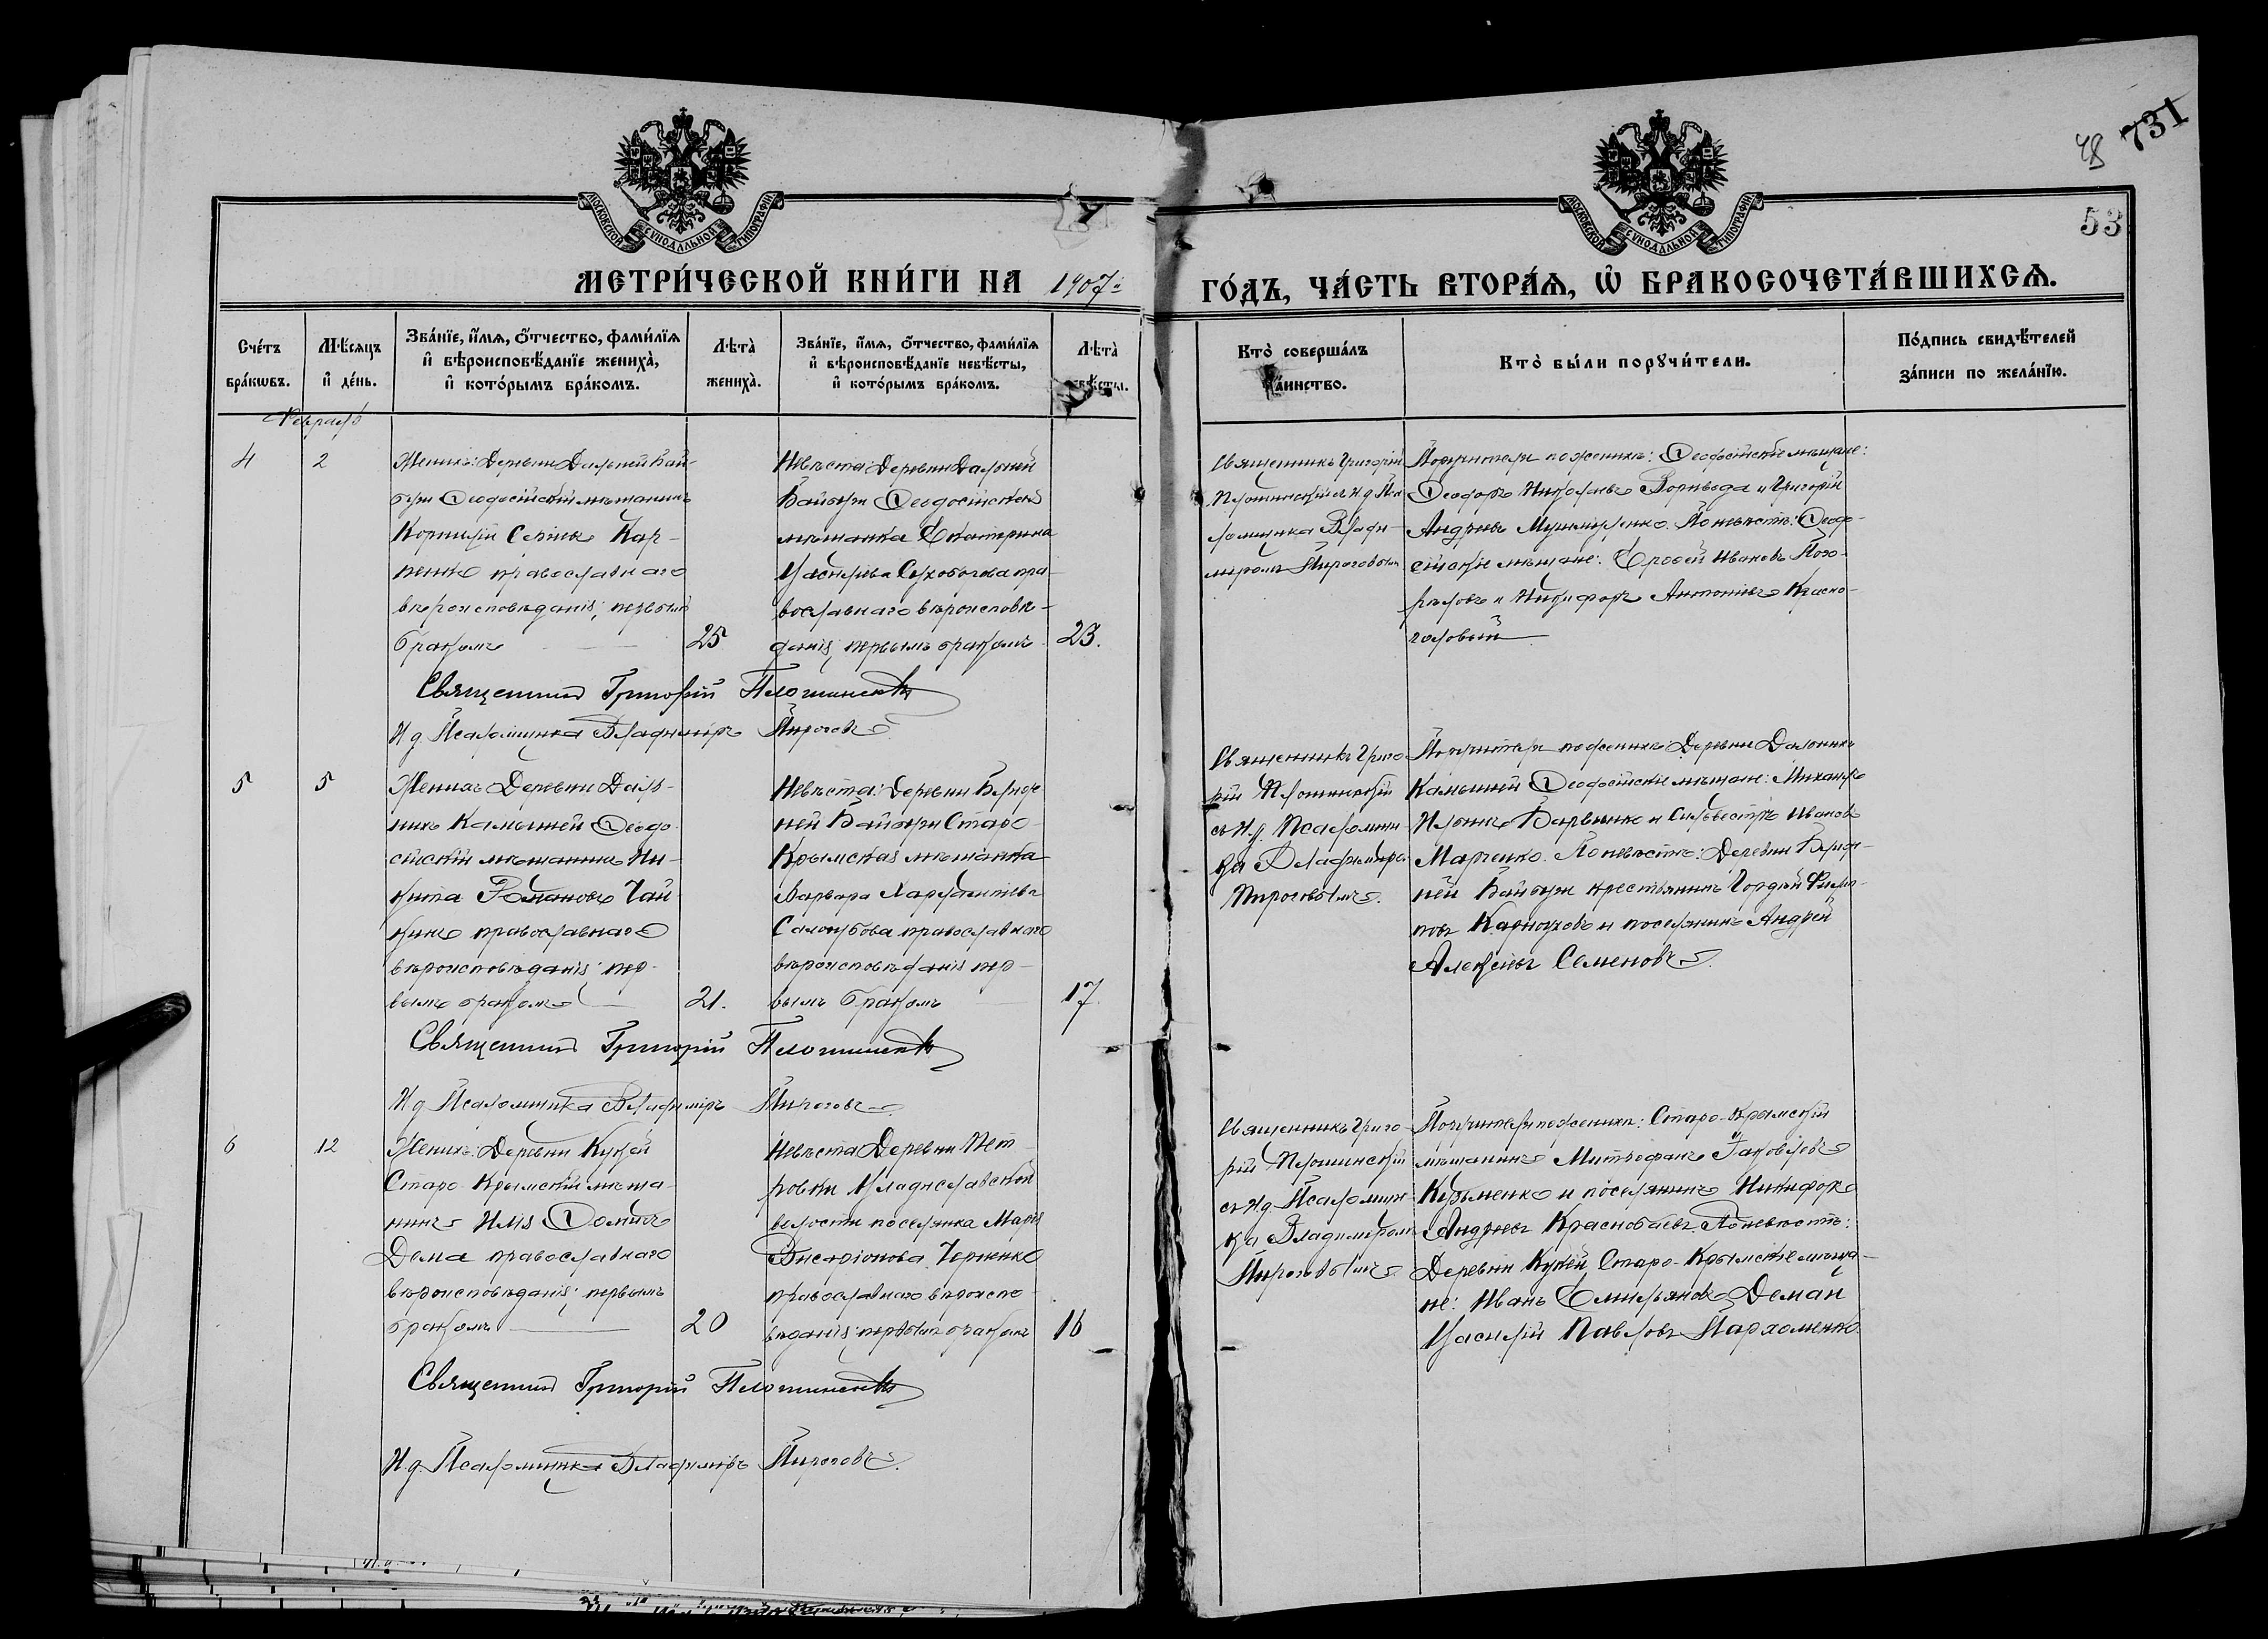 48 731
53
МОСКОВСКОЙ СѴНОДАЛЬНОЙ ТИПОГРАФІИ
МОСКОВСКОЙ СѴНОДАЛЬНОЙ ТИПОГРАФІИ
МЕТРИ́ЧЕСКОЙ КНИ́ГИ НА 1907
ГО́ДЪ, ЧА́СТЬ ВТОРА́Ѧ, Ѿ БРАКОСОЧЕТА́ВШИХСѦ.
Сче́тъ бра́кѡвъ.
Мѣ́сяцъ и҆ де́нь.
Зва́нїе, и҆́мѧ, ѻ҆́тчество, фами́лїѧ
и҆ вѣроисповѣ́данїе жениха̀,
и҆ кото́рымъ бра́комъ.
Лѣта̀ жениха̀.
Зва́нїе, и҆́мѧ, ѻ҆́тчество, фами́лїѧ
и҆ вѣроисповѣ́данїе невѣ́сты,
и҆ кото́рымъ бра́комъ.
Лѣта̀
Кто̀ соверша́лъ
Кто̀ бы́ли порꙋчи́тели.
По́дпись свидѣ́телей
за́писи по жела́нїю.
Февраль
4
2
Женихъ: Деревни Дальней Бай-
бузи Ѳеодосійскій мѣщанинъ
Корнилій Кар-
пенко православнаго
вѣроисповѣданія; первымъ
бракомъ
25
Невѣста: Деревни Дальней
Байбузи Ѳеодосійская
мѣщанка Екатерина
Васильева пра-
вославнаго вѣроисповѣ-
данія; первымъ бракомъ
23.
Священникъ Григорій
Псаломщика Владим-
міромъ Пироговымъ
Поручители по женихѣ: Ѳеодосійскіе мѣщане:
Ѳеодоръ Николаевъ и Григорій
Андреевъ По невѣстѣ: Ѳеодо-
сійскіе мѣщане: Ивановъ Пого-
рѣловъ и Никифоръ Антоніевъ Красно-
головый
Священникъ Григорій
И д Псаломщика Владиміръ Пироговъ
5
5
Женихъ Деревни Даль-
нихъ Камышей Ѳеодо-
сійскій мѣщанинъ Ни-
кита Романовъ Чай-
кинъ православнаго
вѣроисповѣданія; пер-
вымъ бракомъ
21.
Невѣста: Деревни Ближ-
ней Байбузи Старо-
Крымская мѣщанка
Варвара Харлампіева
православнаго
вѣроисповѣданія пер-
вымъ бракомъ
17.
Священникъ Григо-
рій
съ И.д. Псаломщи-
ка Владиміромъ
Пироговымъ.
Поручители по женихѣ: Деревни Дальнихъ
Камышей Ѳеодосійскіе мѣщане: Михаилъ
и Сильвестръ Ивановъ
Марченко. По невѣстѣ: Деревни Ближ-
ней Байбузи крестьянинъ Гордѣй Филип-
повъ Карнауховъ и поселянинъ Андрей
Алексѣевъ Семеновъ.
Священникъ Григорій
И д Псаломщика Владиміръ Пироговъ
6
12
Женихъ: Деревни
Старо-Крымскій мѣща-
нинъ Илія Ѳомичъ
Дема православнаго
вѣроисповѣданія; первымъ
бракомъ
20
Невѣста Деревни Пет-
ровки Владиславской
волости поселянка Марія
Виссаріонова Черненко
православнаго вѣроиспо-
вѣданія; первымъ бракомъ
16
Священникъ Григо-
рій
съ И.д. Псаломщи-
ка Владиміромъ
Пироговымъ.
Поручители по женихѣ: Старо-Крымскій
мѣщанинъ Митрофанъ Іаковлевъ
Кузьменко и поселянинъ Никифоръ
Андреевъ Краснобаевъ. По невѣстѣ:
Деревни Старо-Крымскіе мѣща-
не: Иванъ Емельяновъ Дема и
Василій Павловъ Пархоменко
Священникъ Григорій
И д. Псаломщика Владиміръ Пироговъ.